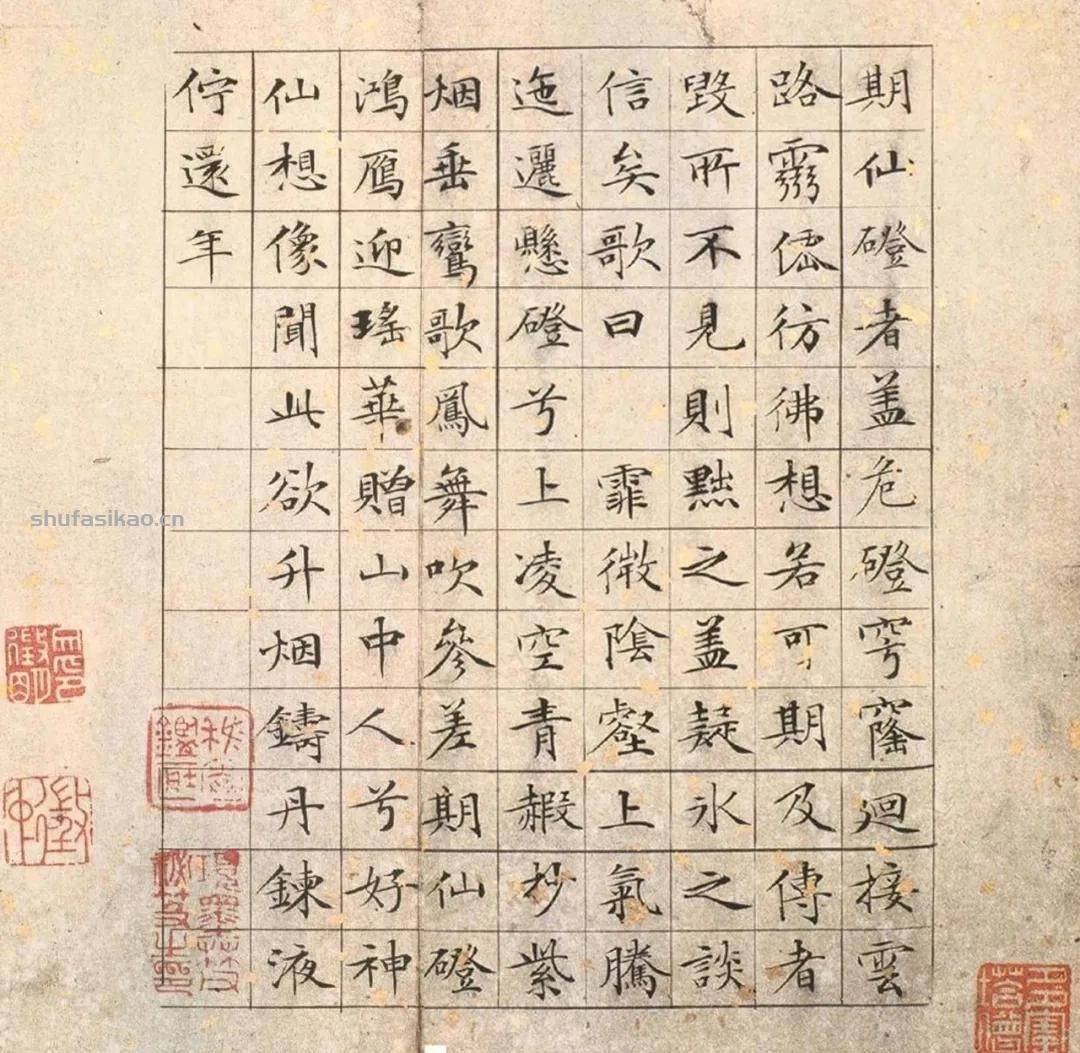 期仙磴者盖危磴穹窿迴接雲
路靈仙彷彿想若可期及儒者
毀所不見則黜之盖疑冰之談
信矣歌曰 霏微陰壑上氣騰
迤邐懸磴兮上凌空青赮杪紫
烟垂鸞歌鳳舞吹參差期仙磴
鴻鴈迎瑤華贈山中人兮好神
仙想像聞此欲升烟鑄丹鍊液
佇還年
shufasikao.cn